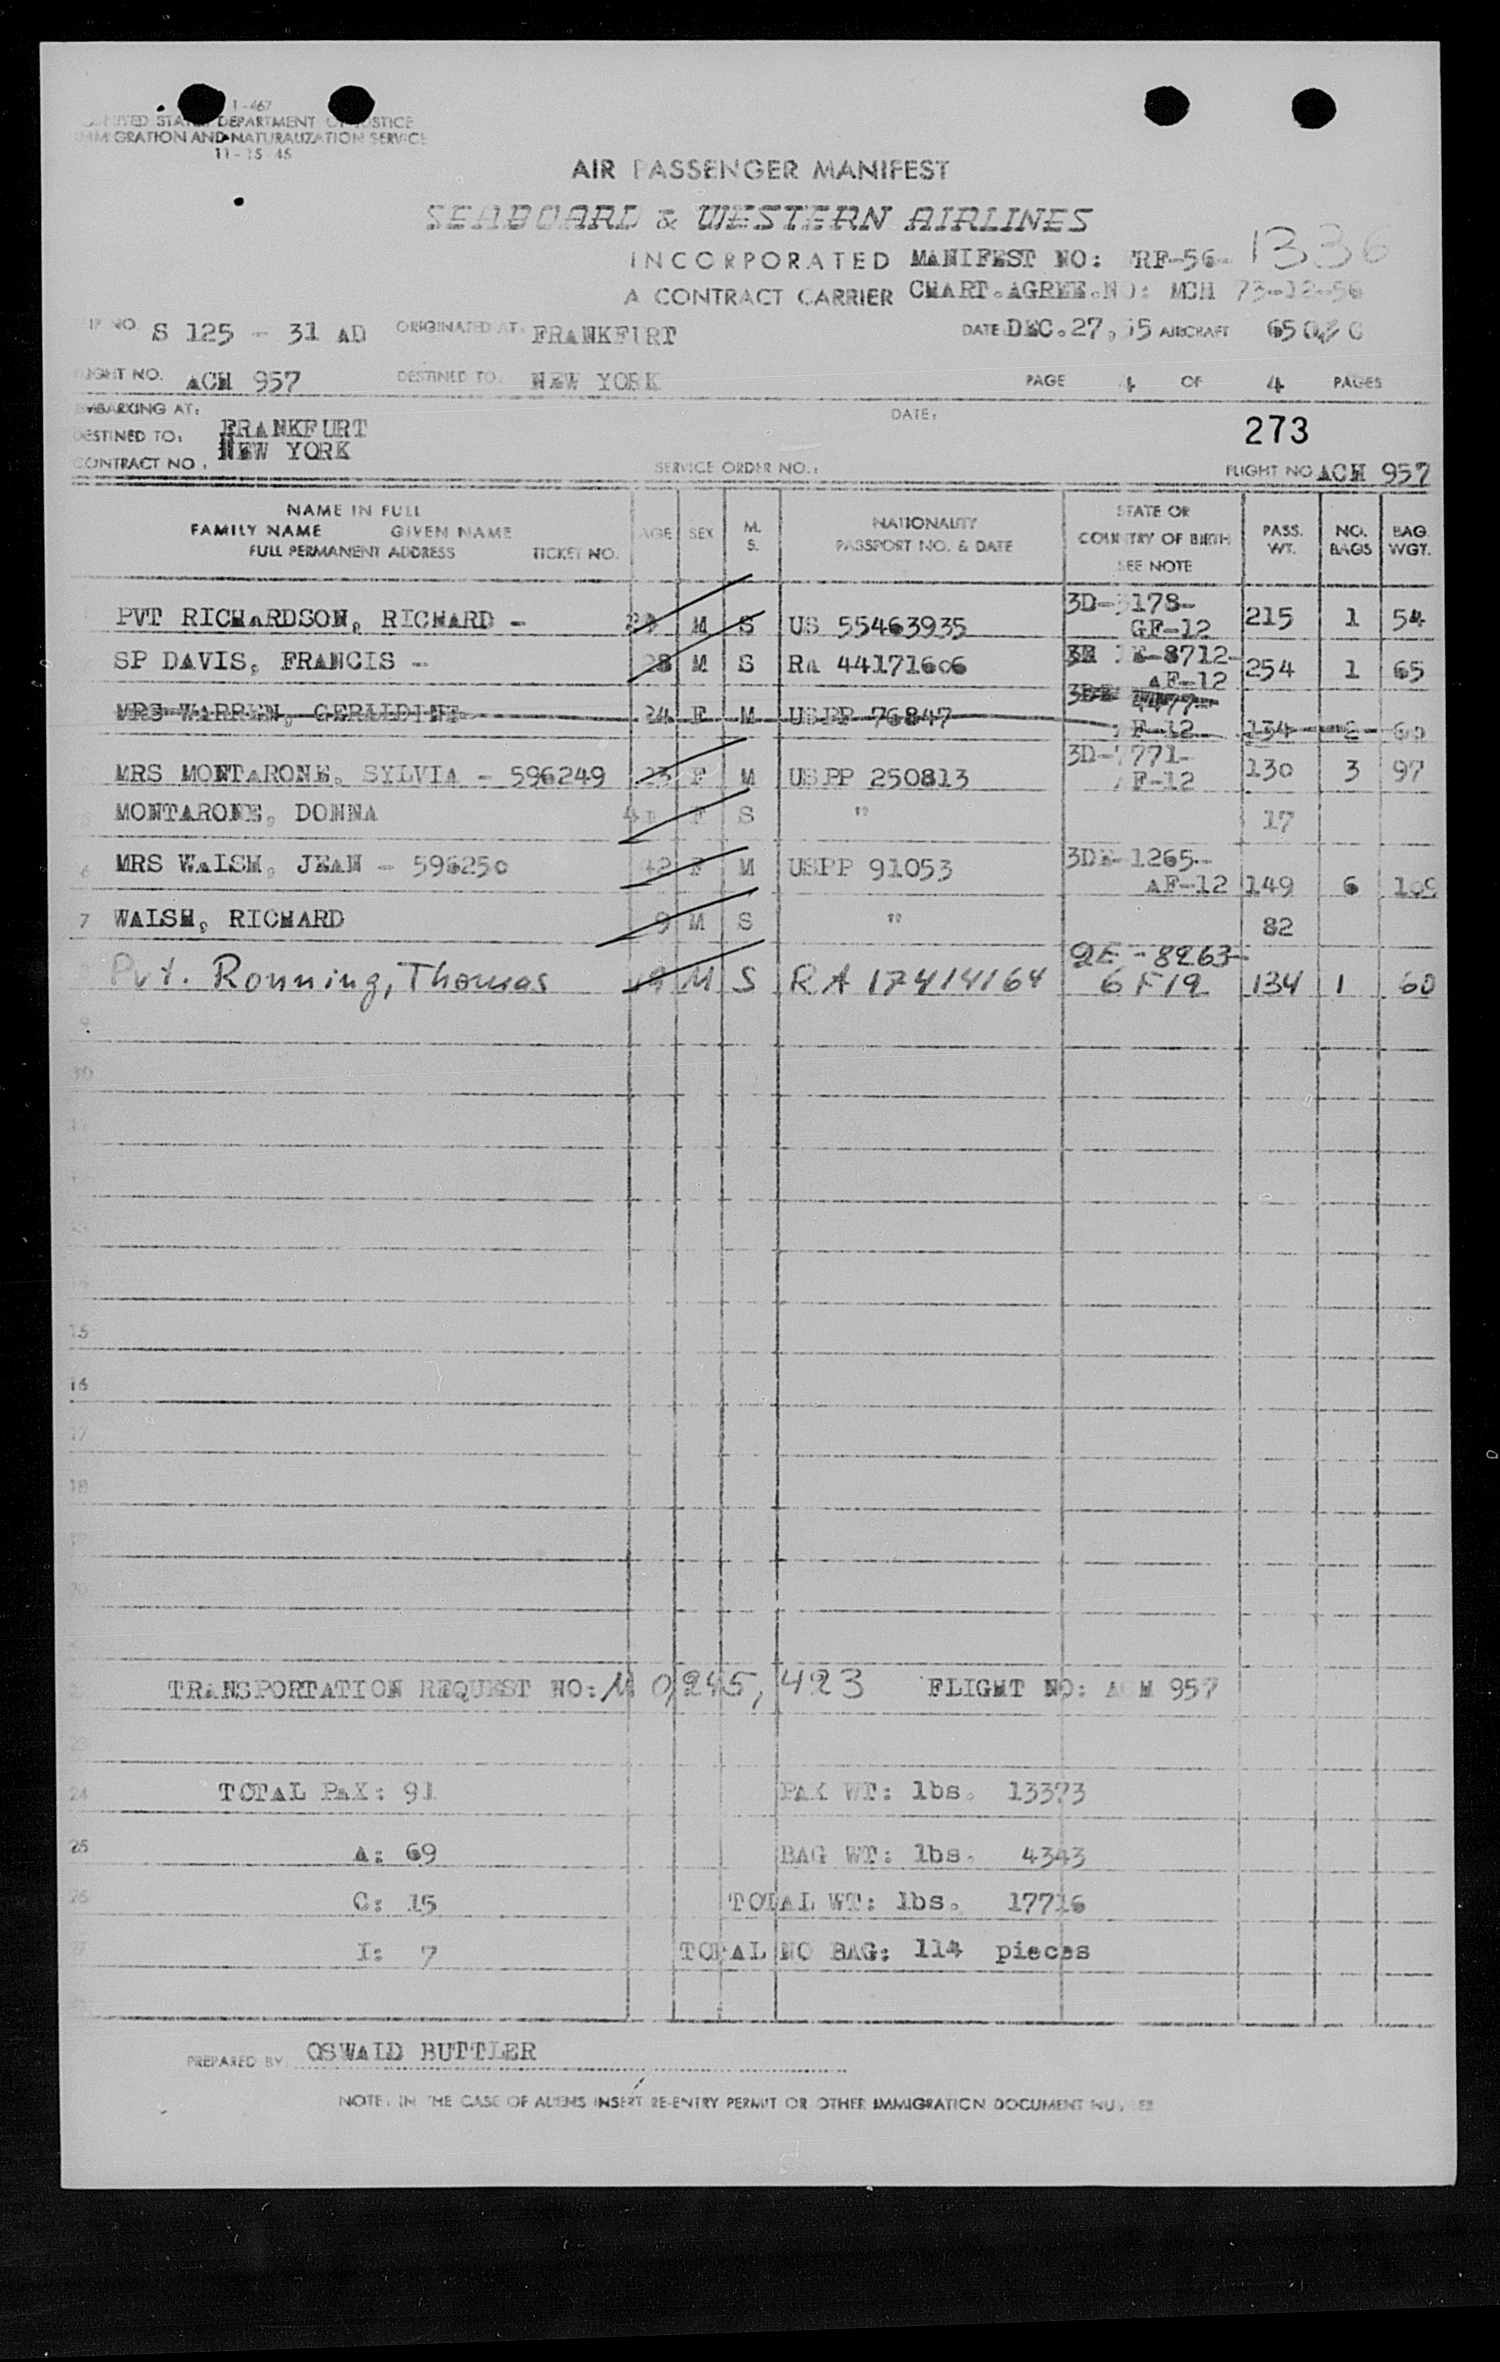 I-467
UNITED STATES DEPARTMENT OF JUSTICE
IMMIGRATION AND NATURALIZATION SERVICE
11-15-45
AIR PASSENGER MANIFEST
SEABOARD & WESTERN AIRLINES
INCORPORATED MANIFEST NO: FRF-56-1336
A CONTRACT CARRIER CHART.AGREE.NO: MCH 73-12-56
NO. S 125 - 31 AD ORIGINATED AT: FRANKFURT DATE DEC.27,55 AIRCRAFT
FLIGHT NO. ACM 957 DESTINED TO: NEW YORK PAGE 4 OF 4 PAGES
EMBARKING AT: FRANKFURT DATE:
DESTINED TO: NEW YORK 273
CONTRACT NO. SERVICE ORDER NO.: FLIGHT NO ACM 957
NAME IN FULL
FAMILY NAME GIVEN NAME
FULL PERMANENT ADDRESS TICKET NO. AGE SEX M. S. NATIONALITY PASSPORT NO. & DATE STATE OR COUNTRY OF BIRTH SEE NOTE PASS. WT. NO. BAGS BAG. WGT.
PVT RICHARDSON, RICHARD - M S US 55463935 3D-3178-GF-12 215 1 54
SP DAVIS, FRANCIS - 28 M S RA 44171606 8712-AF-12 254 1 65
MRS WARREN, GERALDINE 24 F M USPP 76847 4477- AF-12 134 2 60
MRS MONTARONE, SYLVIA - 596249 23 F M USPP 250813 3D-7771-AF-12 130 3 97
MONTARONE, DONNA F S " 17
6 MRS WALSH, JEAN - 596250 42 F M USPP 91053 3DE-1265-AF-12 149 6 109
7 WALSH, RICHARD 9 M S " 82
8 Pvt. Ronning, Thomas 19 M S RA 17414164 QE-8263-6F12 134 1 60
9
10
15
16
17
18
TRANSPORTATION REQUEST NO: M 0,245,423 FLIGHT NO: ACM 957
23
24 TOTAL PAX: 91 PAX WT: lbs. 13373
25 A: 69 BAG WT: lbs. 4343
26 C: 15 TOTAL WT: lbs. 17716
27 I: 7 TOTAL NO BAG: 114 pieces
PREPARED BY: OSWALD BUTTLER
NOTE: IN THE CASE OF ALIENS INSERT RE-ENTRY PERMIT OR OTHER IMMIGRATION DOCUMENT NUMBER